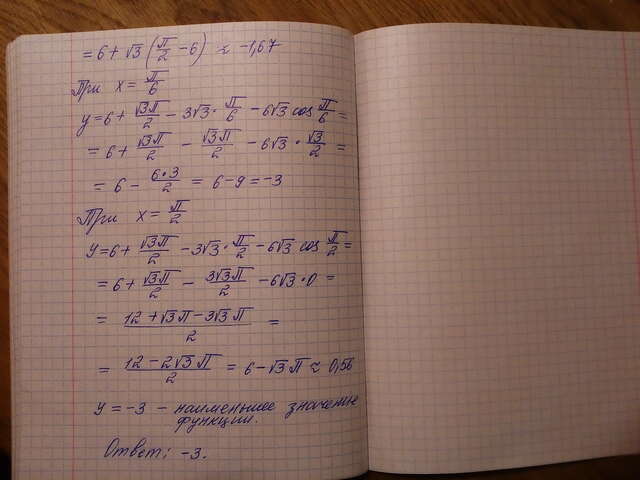 = 6 + √3 (π/2 − 6) ≈ −1,67
При x = π/6
y = 6 + √3π/2 − 3√3 · π/6 − 6√3 cos π/6 =
= 6 + √3π/2 − √3π/2 − 6√3 · √3/2 =
= 6 − 6·3/2 = 6 − 9 = −3
При x = π/2
y = 6 + √3π/2 − 3√3 · π/2 − 6√3 cos π/2 =
= 6 + √3π/2 − 3√3π/2 − 6√3 · 0 =
= 12 + √3π − 3√3π/2 =
= 12 − 2√3π/2 = 6 − √3π ≈ 0,56
y = −3 – наименьшее значение
функции.
Ответ: −3.